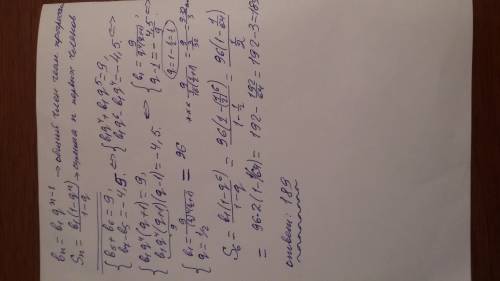 bₙ = b₁qⁿ⁻¹ → общий член геом. прогрессии
Sₙ = b₁(1-qⁿ)/(1-q) → сумма n первых членов
{ b₅ + b₆ = 9, b₇ - b₅ = -4,5. ⇔ { b₁q⁴ + b₁q⁵ = 9, b₁q⁶ - b₁q⁴ = -4,5. ⇔
{ b₁q⁴(q+1) = 9, b₁q⁴(q+1)(q-1) = -4,5. ⇔ { b₁ = 9/(q⁴(q+1)), q-1 = -4,5/9 ⇔
(q = 1 - 1/2 = 1/2)
{ b₁ = 9/(1/16(1/2+1)) = 96
q = 1/2
S₆ = b₁(1-q⁶)/(1-q) = 96(1-(1/2)⁶)/(1-1/2) = 96(1-1/64)/(1/2) =
= 96·2(1-1/64) = 192 - 192/64 = 192-3 = 189
ответ: 189